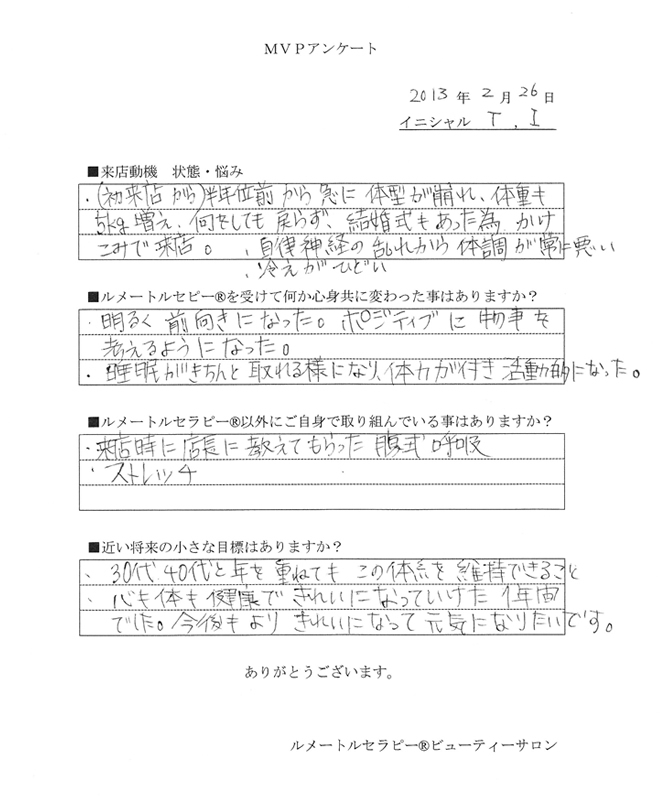 MVPアンケート
2013年2月26日
イニシャル T.I
■来店動機 状態・悩み
・(初来店から)半年位前から急に体型が崩れ、体重も
5kg増え、何をしても戻らず、結婚式もあった為 かけ
こみで来店。 ・自律神経の乱れから体調が常に悪い
・冷えがひどい
■ルメートルセピー®を受けて何か心身共に変わった事はありますか?
・明るく前向きになった。ポジティブに物事を
考えるようになった。
・睡眠がきちんと取れる様になり、体力が付き活動的になった。
■ルメートルセラピー®以外にご自身で取り組んでいる事はありますか?
・来店時に店長に教えてもらった腹式呼吸
・ストレッチ
■近い将来の小さな目標はありますか?
・30代40代と年を重ねてもこの体系を維持できること
・心も体も健康できれいになっていけた1年間
でした。今後もよりきれいになって元気になりたいです。
ありがとうございます。
ルメートルセラピー®ビューティーサロン